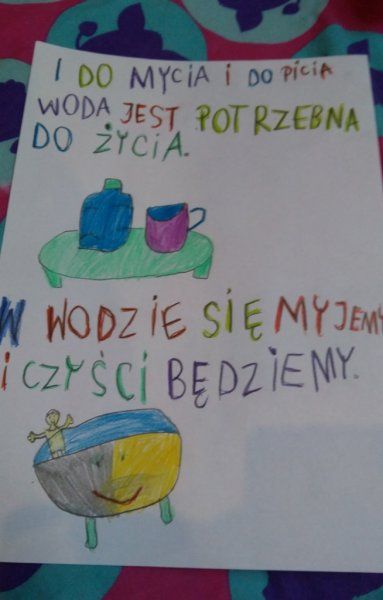 I DO MYCIA I DO PICIA
WODA JEST POTRZEBNA
DO ŻYCIA.
W WODZIE SIĘ MYJEMY
I CZYŚCI BĘDZIEMY.